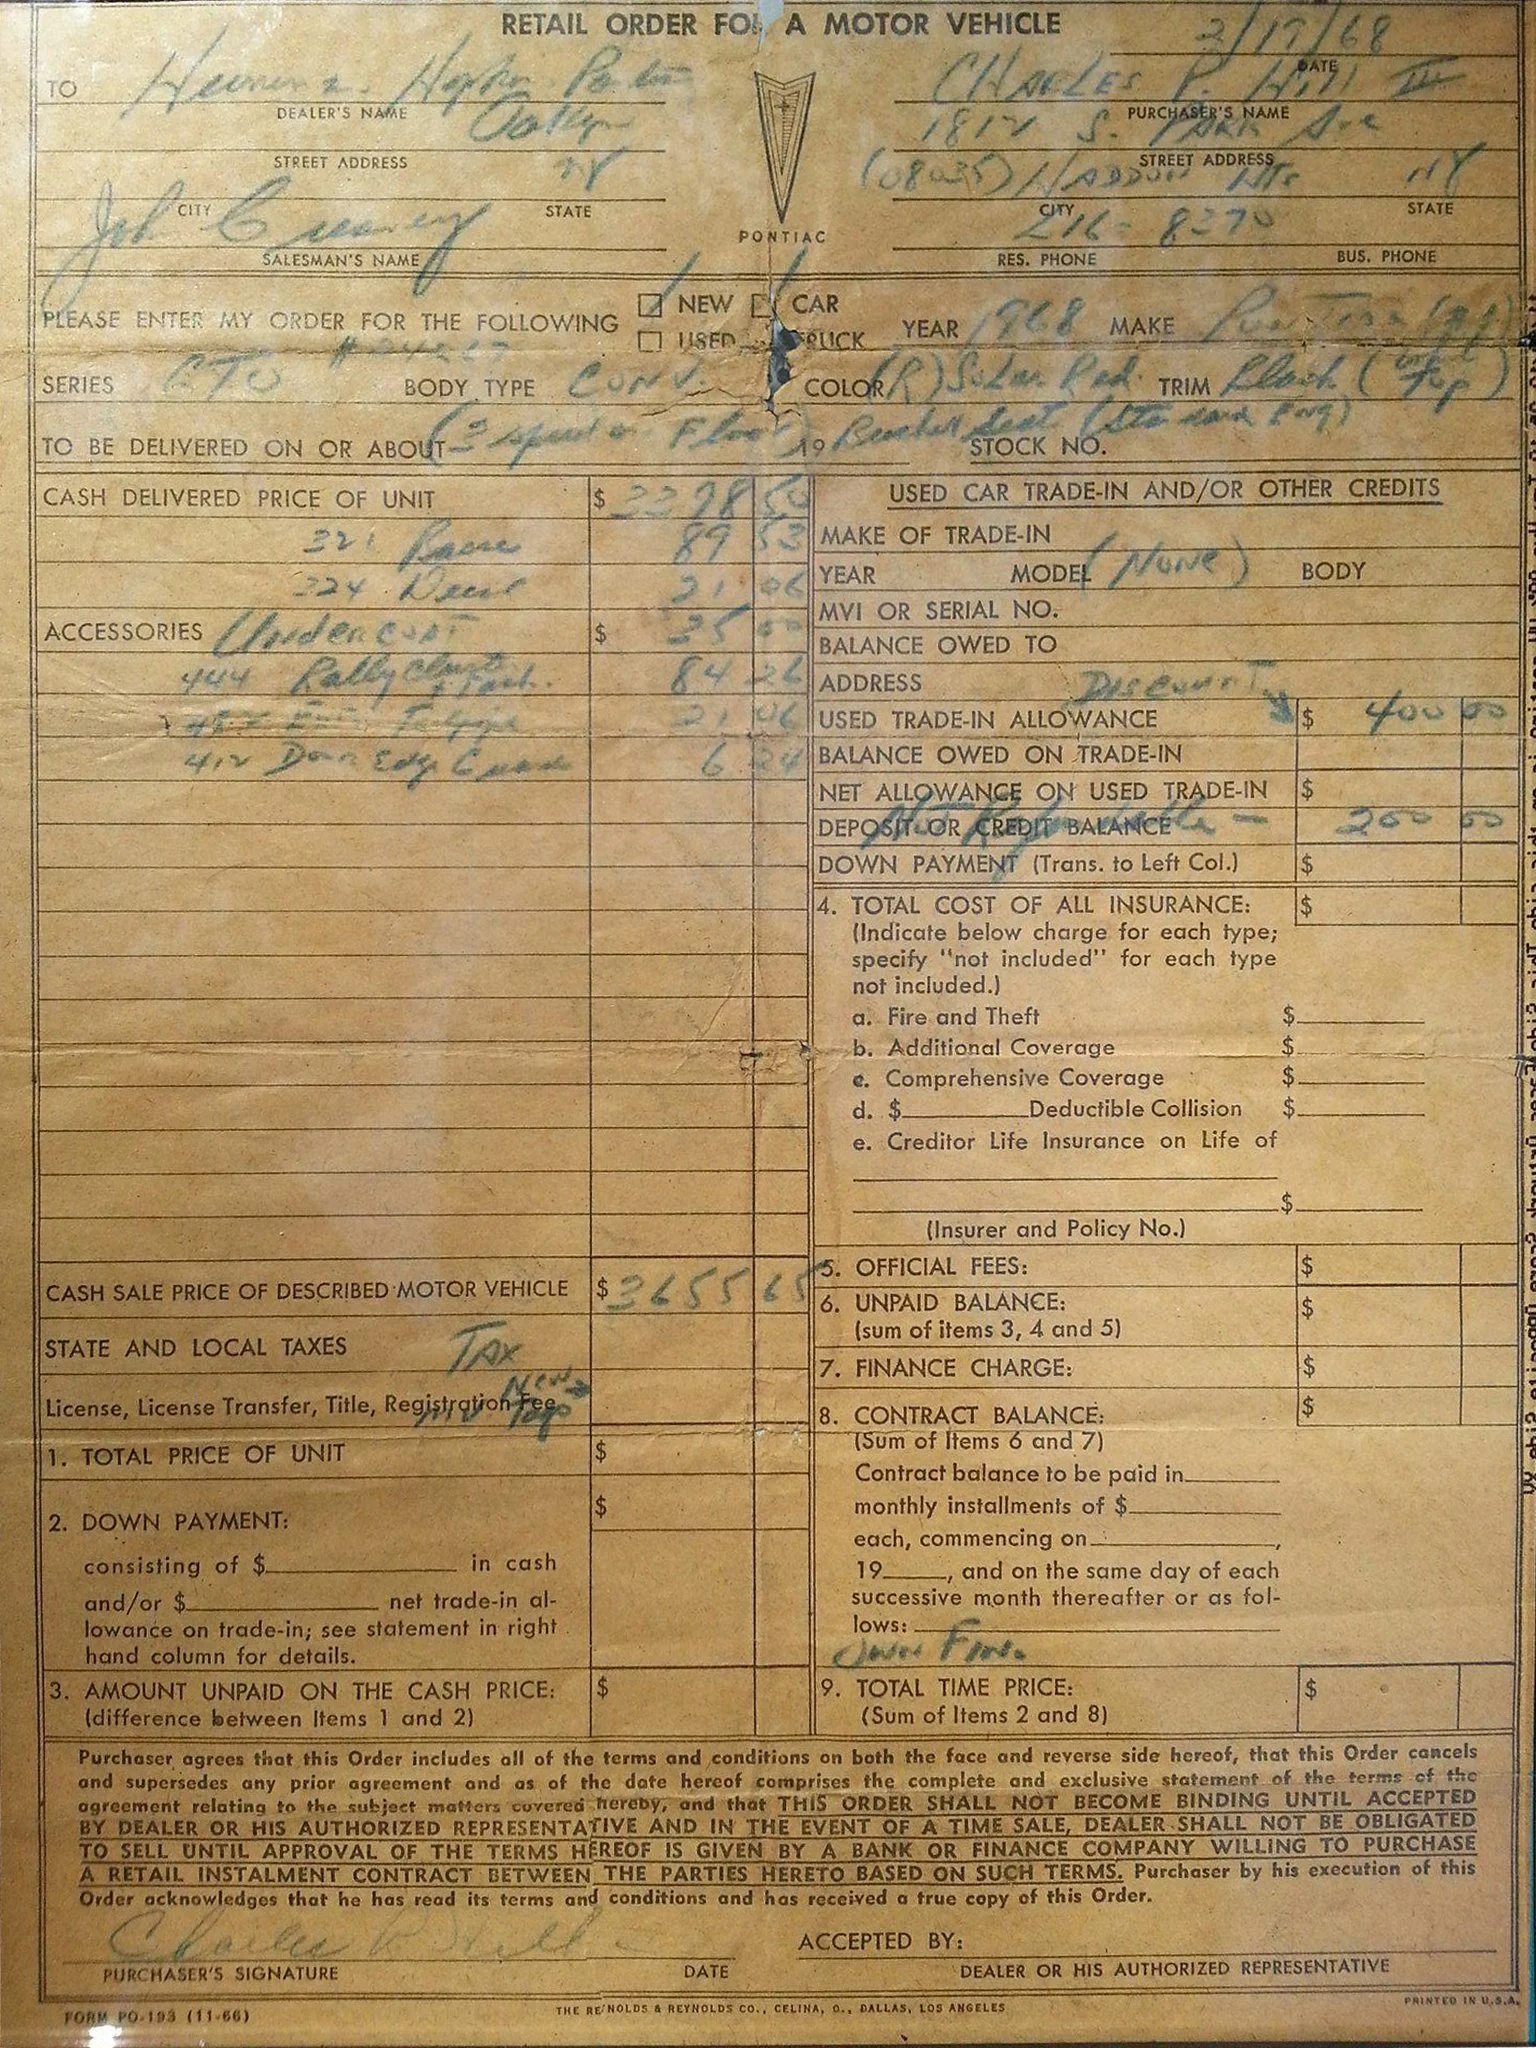 RETAIL ORDER FOR A MOTOR VEHICLE
2/17/68
DATE
TO
DEALER'S NAME
CHARLES P. Hill III
PURCHASER'S NAME
Oaklyn
STREET ADDRESS
1812 S. PARK Ave
STREET ADDRESS
NJ
CITY STATE
(08035) HADDON Hts NJ
CITY STATE
PONTIAC
SALESMAN'S NAME
216-8270
RES. PHONE BUS. PHONE
PLEASE ENTER MY ORDER FOR THE FOLLOWING
NEW CAR
USED TRUCK
YEAR 1968 MAKE PONTIAC
SERIES GTO BODY TYPE CONV. COLOR (R) Solar Red TRIM Black ( Top)
TO BE DELIVERED ON OR ABOUT (3 speed on Floor) 19 Bucket Seat (Standard Eng) STOCK NO.
CASH DELIVERED PRICE OF UNIT $ 50
321 89 53
324 Decor 21 06
ACCESSORIES Undercoat $ 35 00
444 Rally Clust. & Tach. 84 26
21 06
412 Door Edge Guards 6 24
CASH SALE PRICE OF DESCRIBED MOTOR VEHICLE $ 3655 65
STATE AND LOCAL TAXES TAX
License, License Transfer, Title, Registration Fee New Tags
1. TOTAL PRICE OF UNIT $
2. DOWN PAYMENT: $
consisting of $ in cash
and/or $ net trade-in al-
lowance on trade-in; see statement in right
hand column for details.
3. AMOUNT UNPAID ON THE CASH PRICE: $
(difference between Items 1 and 2)
USED CAR TRADE-IN AND/OR OTHER CREDITS
MAKE OF TRADE-IN
YEAR MODEL (None) BODY
MVI OR SERIAL NO.
BALANCE OWED TO
ADDRESS DISCOUNT
USED TRADE-IN ALLOWANCE $ 400 00
BALANCE OWED ON TRADE-IN
NET ALLOWANCE ON USED TRADE-IN $
Not Refundable -
DEPOSIT OR CREDIT BALANCE 200 00
DOWN PAYMENT (Trans. to Left Col.) $
4. TOTAL COST OF ALL INSURANCE: $
(Indicate below charge for each type;
specify "not included" for each type
not included.)
a. Fire and Theft $
b. Additional Coverage $
c. Comprehensive Coverage $
d. $ Deductible Collision $
e. Creditor Life Insurance on Life of
$
(Insurer and Policy No.)
5. OFFICIAL FEES: $
6. UNPAID BALANCE: $
(sum of items 3, 4 and 5)
7. FINANCE CHARGE: $
8. CONTRACT BALANCE: $
(Sum of Items 6 and 7)
Contract balance to be paid in
monthly installments of $
each, commencing on ,
19 , and on the same day of each
successive month thereafter or as fol-
lows:
Own Fin.
9. TOTAL TIME PRICE: $
(Sum of Items 2 and 8)
Purchaser agrees that this Order includes all of the terms and conditions on both the face and reverse side hereof, that this Order cancels
and supersedes any prior agreement and as of the date hereof comprises the complete and exclusive statement of the terms of the
agreement relating to the subject matters covered hereby, and that THIS ORDER SHALL NOT BECOME BINDING UNTIL ACCEPTED
BY DEALER OR HIS AUTHORIZED REPRESENTATIVE AND IN THE EVENT OF A TIME SALE, DEALER SHALL NOT BE OBLIGATED
TO SELL UNTIL APPROVAL OF THE TERMS HEREOF IS GIVEN BY A BANK OR FINANCE COMPANY WILLING TO PURCHASE
A RETAIL INSTALMENT CONTRACT BETWEEN THE PARTIES HERETO BASED ON SUCH TERMS. Purchaser by his execution of this
Order acknowledges that he has read its terms and conditions and has received a true copy of this Order.
Charles P. Hill
PURCHASER'S SIGNATURE DATE
ACCEPTED BY:
DEALER OR HIS AUTHORIZED REPRESENTATIVE
FORM PO-193 (11-66)
THE REYNOLDS & REYNOLDS CO., CELINA, O., DALLAS, LOS ANGELES
PRINTED IN U.S.A.